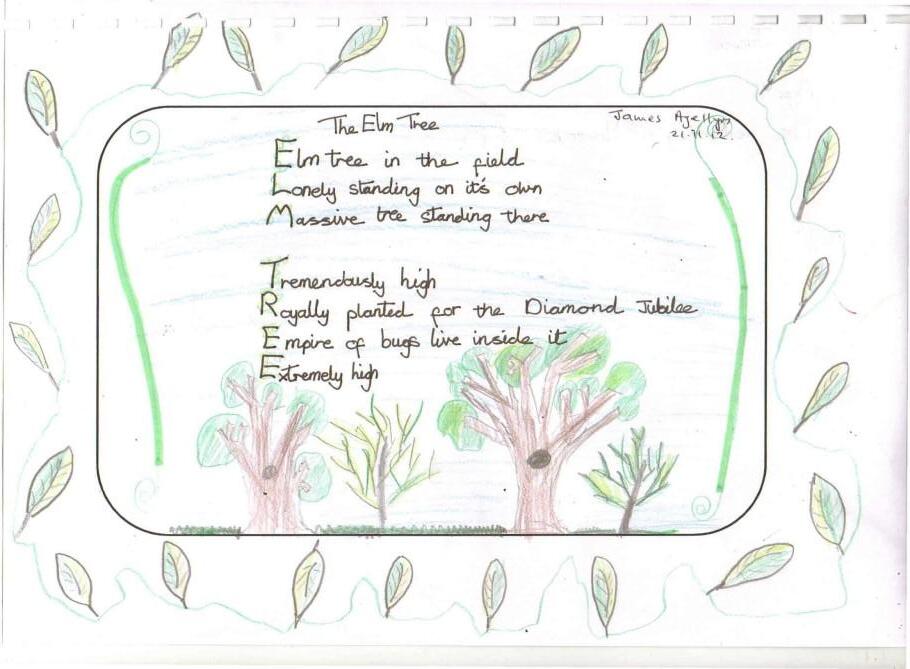 The Elm Tree
James
21.11.12.
Elm tree in the field
Lonely standing on it's own
Massive tree standing there
Tremendously high
Royally planted for the Diamond Jubilee
Empire of bugs live inside it
Extremely high